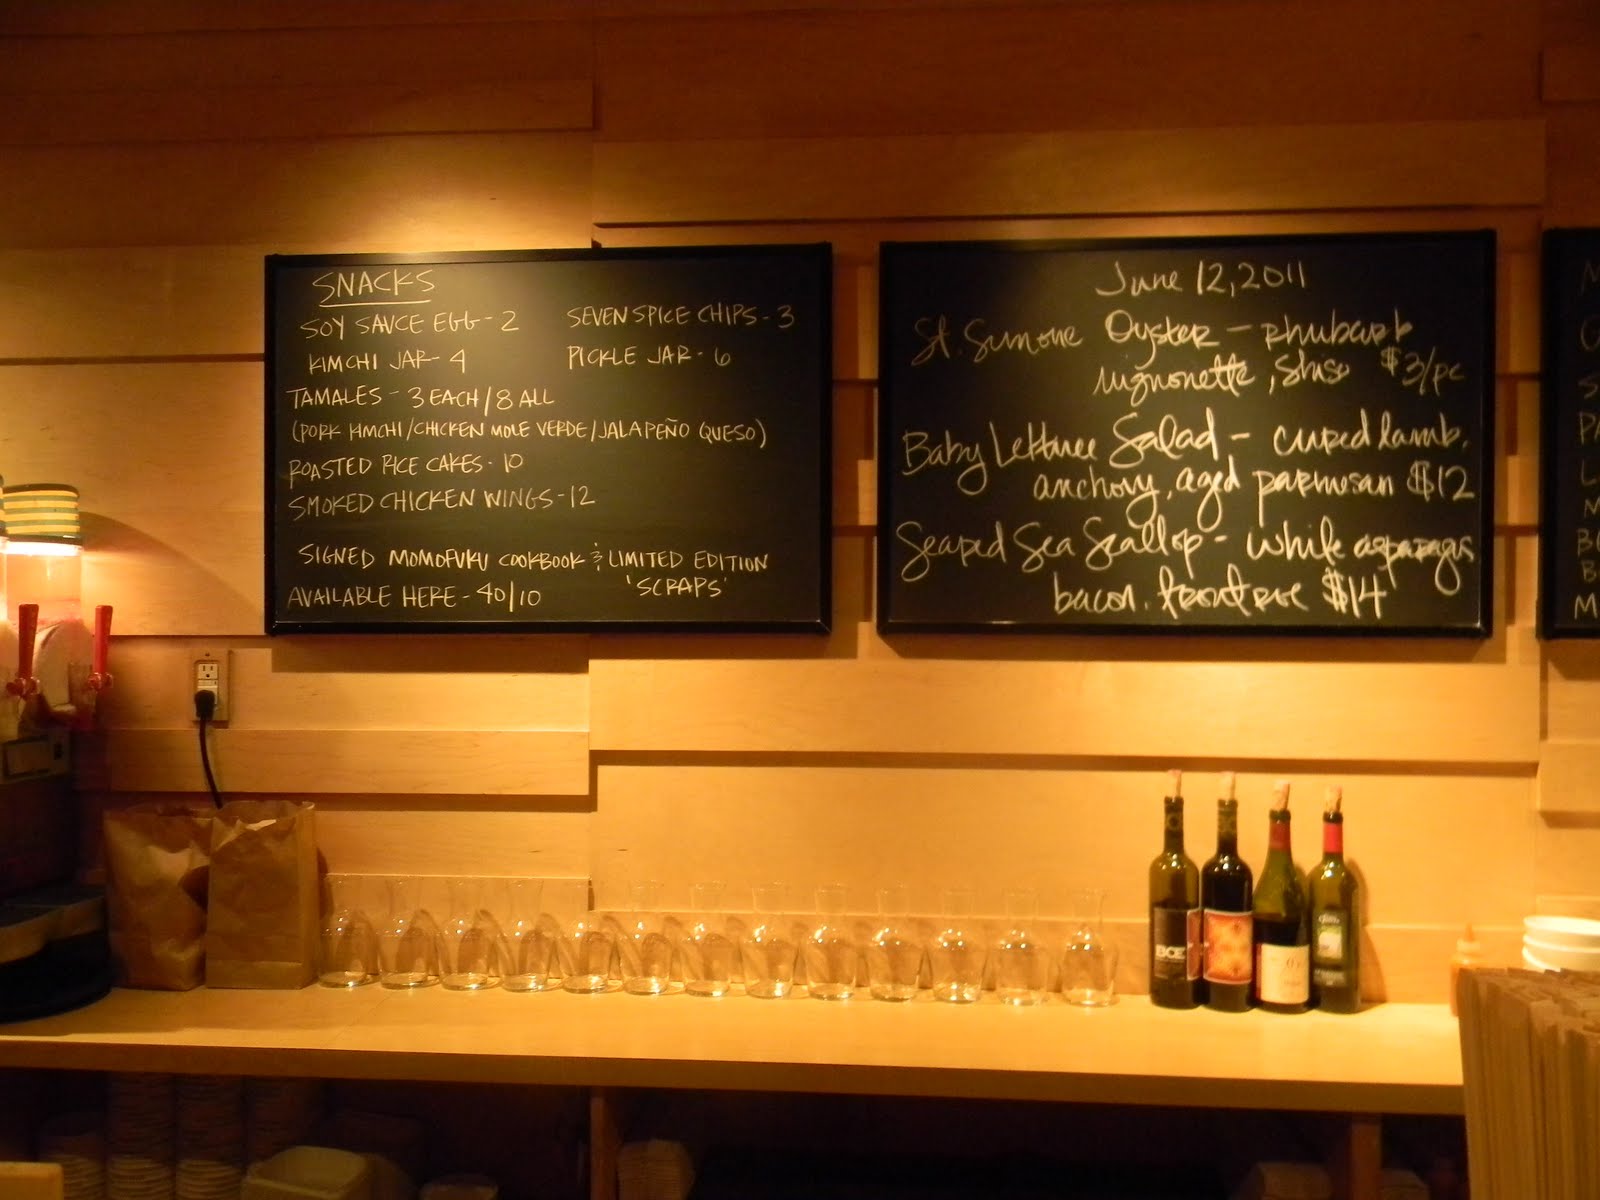 SNACKS
SOY SAUCE EGG - 2 SEVEN SPICE CHIPS - 3
KIMCHI JAR - 4 PICKLE JAR - 6
TAMALES - 3 EACH / 8 ALL
(PORK KIMCHI / CHICKEN MOLE VERDE / JALAPEÑO QUESO)
ROASTED RICE CAKES - 10
SMOKED CHICKEN WINGS - 12
SIGNED MOMOFUKU COOKBOOK & LIMITED EDITION
'SCRAPS'
AVAILABLE HERE - 40/10
June 12, 2011
St. Simone Oyster - rhubarb
mignonette, shiso $3/pc
Baby Lettuce Salad - cured lamb,
anchovy, aged parmesan $12
Seared Sea Scallop - white asparagus
bacon, $14